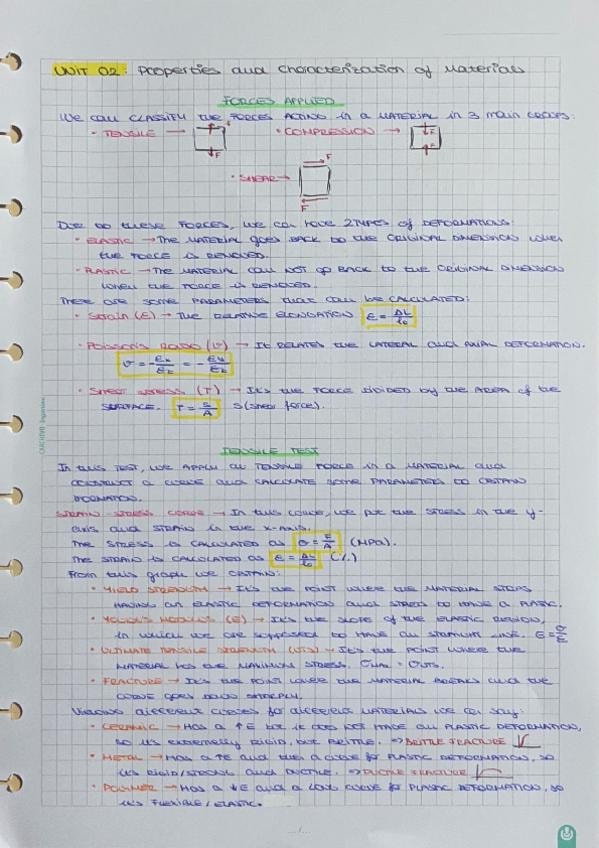 UNIT 02: Properties and characterization of Materials
FORCES APPLIED
We can CLASSIFY the FORCES ACTING in a MATERIAL in 3 main GROUPS:
• TENSILE → F • COMPRESSION → F F
• SHEAR → F F
Due to these FORCES, we can have 2 TYPES of DEFORMATIONS:
• ELASTIC → The MATERIAL goes BACK to the ORIGINAL DIMENSION when
the FORCE is REMOVED.
• PLASTIC → The MATERIAL can NOT go BACK to the ORIGINAL DIMENSION
when the FORCE is REMOVED.
There are some PARAMETERS that can be CALCULATED:
• Strain (ε) → The RELATIVE ELONGATION ε = ΔL/L0
• Poisson's RATIO (υ) → It RELATES the LATERAL and AXIAL DEFORMATION.
• Shear stress (T) → It's the FORCE DIVIDED by the AREA of the
SURFACE. T = S/A S (shear force).
TENSILE TEST
In this TEST, we APPLY a TENSILE FORCE in a MATERIAL and
CONSTRUCT a CURVE and CALCULATE some PARAMETERS to OBTAIN
INFORMATION.
STRAIN-STRESS CURVE → In this CURVE, we put the STRESS in the y-
axis and STRAIN in the x-axis.
The STRESS is CALCULATED as σ = F/A (MPa).
The STRAIN is CALCULATED as ε = ΔL/L0 (%)
From this graph we OBTAIN:
• YIELD STRENGTH → It's the POINT WHERE the MATERIAL STOPS
HAVING an ELASTIC DEFORMATION and STARTS to HAVE a PLASTIC.
• YOUNG'S MODULUS (E) → It's the SLOPE of the ELASTIC REGION,
in which we are supposed to HAVE an STRAIGHT LINE. E = σ/ε
• ULTIMATE TENSILE STRENGTH (UTS) → It's the POINT WHERE the
MATERIAL has the MAXIMUM STRESS. = σUTS.
• FRACTURE → It's the POINT WHERE the MATERIAL BREAKS and the
CURVE goes DOWN
different CURVES for different MATERIALS we can say:
• CERAMIC → Has a ↑E but it does not HAVE an PLASTIC DEFORMATION,
so it's EXTREMELY RIGID, but BRITTLE. ⇒ BRITTLE FRACTURE
• METAL → Has a ↑E and then a CURVE for PLASTIC DEFORMATION, so
it's RIGID/STRONG and DUCTILE. ⇒ DUCTILE FRACTURE
• POLYMER → Has a ↓E and a LONG CURVE for PLASTIC DEFORMATION, so
it's FLEXIBLE/ELASTIC.
.../...